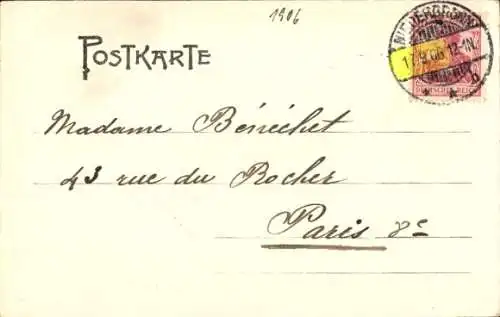 1906
POSTKARTE
NIEDERBRONN
17.9.06 12-1N.
* A b
DEUTSCHES REICH
Madame Bénéchet
43 rue du Rocher
Paris 8e